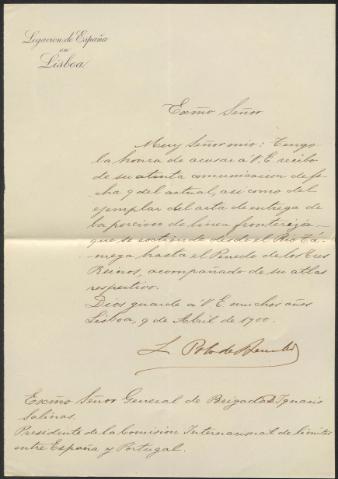 Legación de España
en
Lisboa
Exmo Señor
Muy Señor mio: Tengo
la honra de acusar a V.E. recibo
de su atenta comunicacion de fe-
cha 9 del actual, asi como del
ejemplar del acta de entrega de
la porcion de linea fronteriza
que se extiende desde el Rio Tá-
mega, hasta el Penedo de los Tres
Reinos, acompañado de su atlas
respectivo.
Dios guarde a V.E. muchos años
Lisboa, 9 de Abril de 1900.
L. Polo de Bernabé
Exmo Señor General de Brigada Ignacio
Salinas.
Presidente de la Comision Internacional de límites
entre España y Portugal.